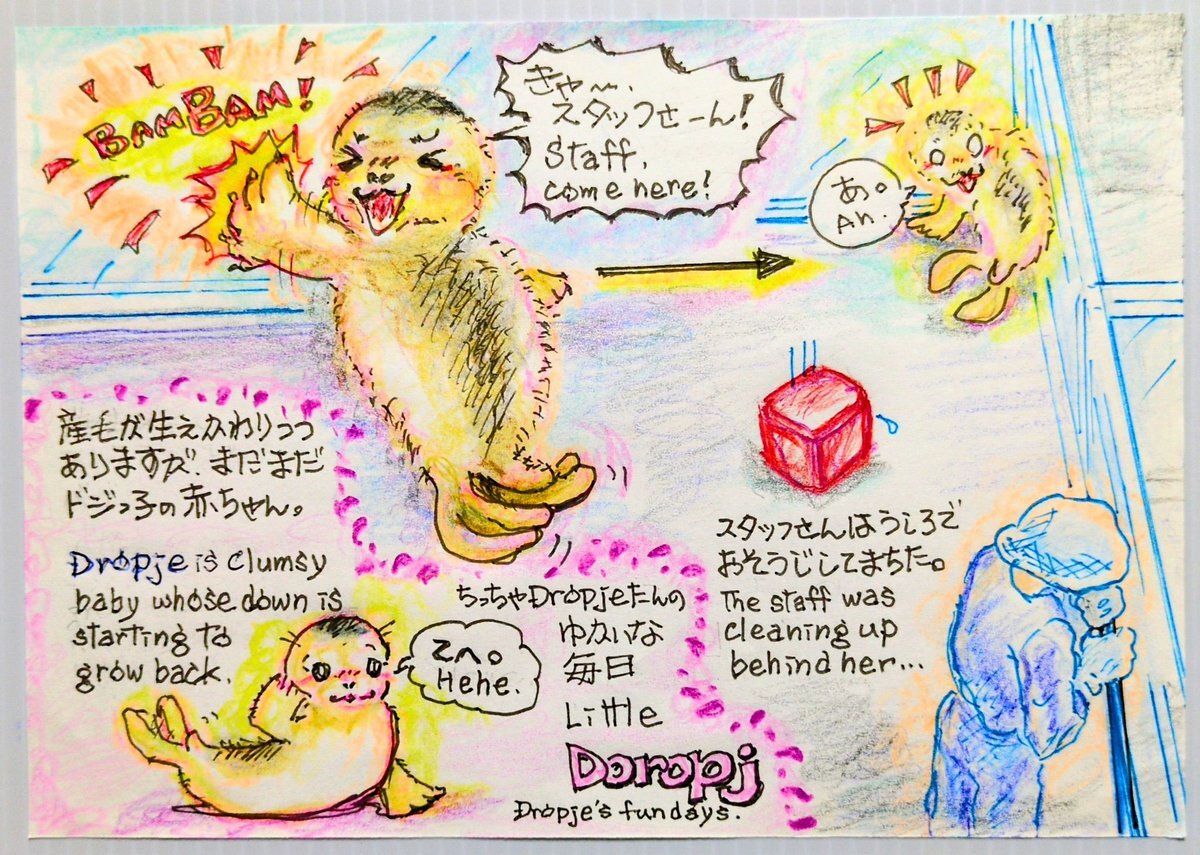 BAMBAM!
きゃ〜、
スタッフさーん!
Staff,
come here!
あ。
An.
産毛が生えかわりつつ
ありますが、まだまだ
ドジっ子の赤ちゃん。
Dropje is clumsy
baby whose down is
starting to
grow back.
てへ。
Hehe.
ちっちゃDropjeたんの
ゆかいな
毎日
Little
Doropj
Dropje's fundays.
スタッフさんはうしろで
おそうじしてまちた。
The staff was
cleaning up
behind her...